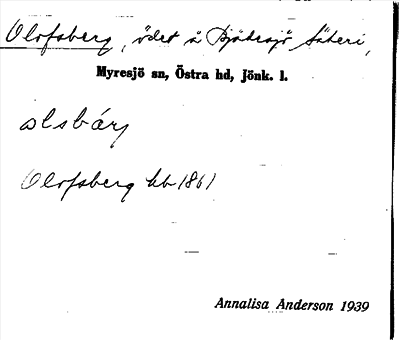 Olofsberg, ödet å Bjädesjö Säteri,
Myresjö sn, Östra hd, Jönk. l.
ɷlsbárj
Olofsberg hb 1861
Annalisa Anderson 1939